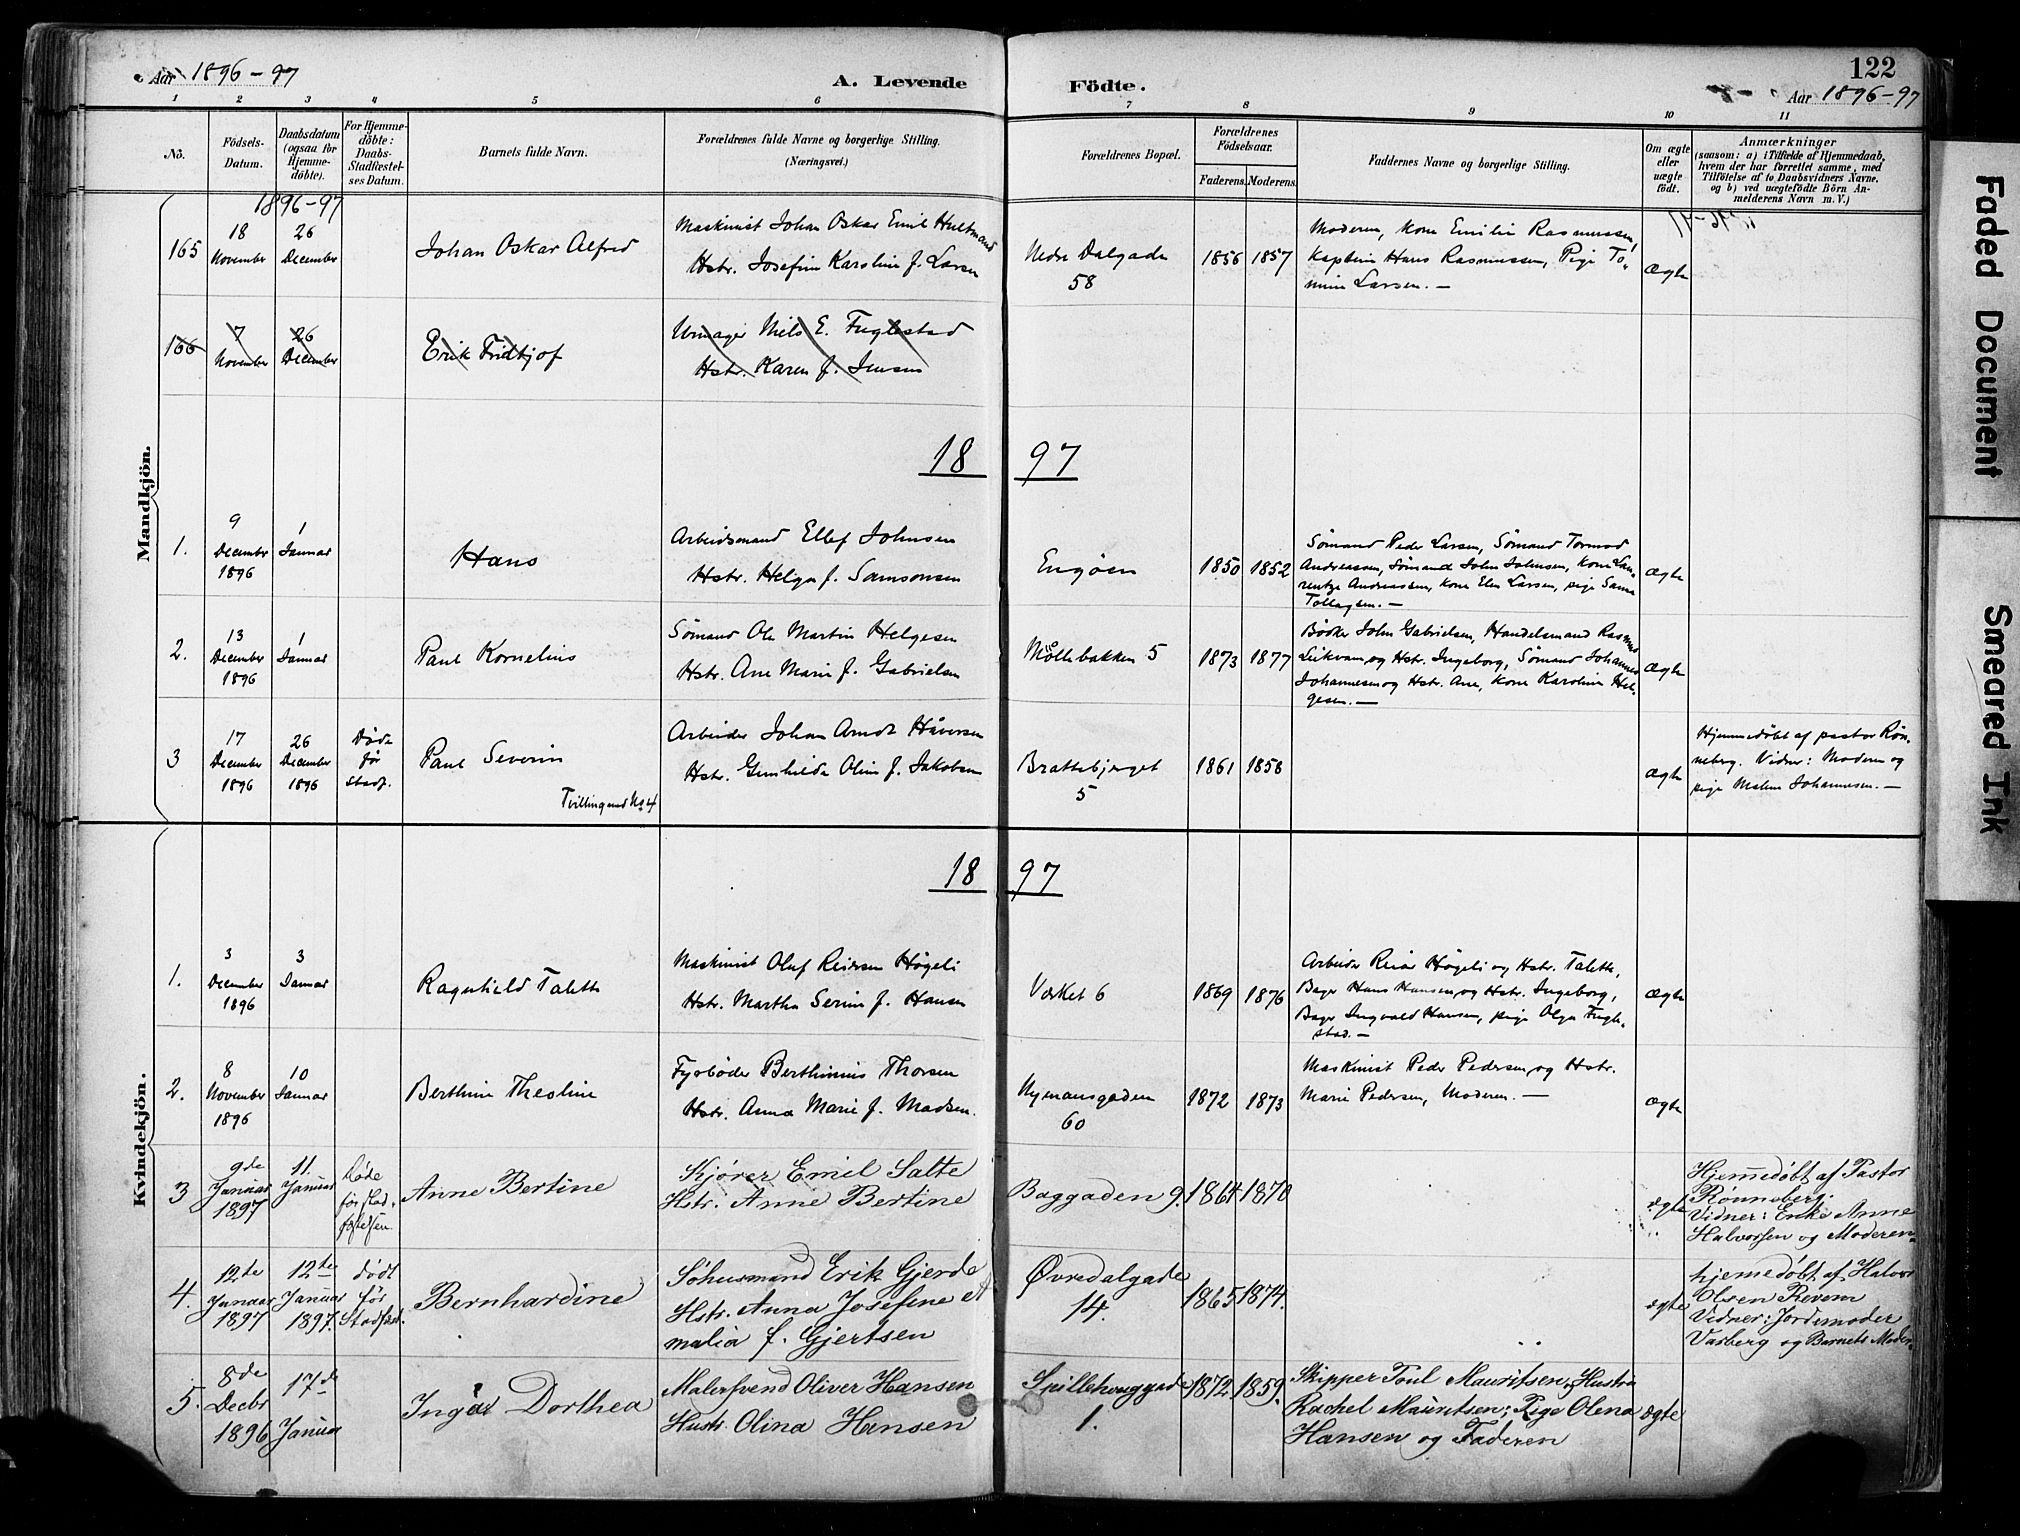 Aar 1896-97
A. Levende Födte.
122
Aar 1896-97
1 2 3 4 5 6 7 8 9 10 11
No.
Födsels-Datum.
Daabsdatum (ogsaa for Hjemme-döbte).
For Hjemme-döbte: Daabs-Stadfæstel-ses Datum.
Barnets fulde Navn.
Forældrenes fulde Navne og borgerlige Stilling.
(Næringsvei.)
Forældrenes Bopæl.
Forældrenes Födselsaar.
Faderens. Moderens.
Faddernes Navne og borgerlige Stilling.
Om ægte eller uægte födt.
Anmærkninger
(saasom: a) i Tilfælde af Hjemmedaab,
hvem der har forrettet samme, med
Tilföielse af to Daabsvidners Navne.
og b) ved uægtefödte Börn An-
melderens Navn m. V.)
Mandkjön.
1896-97
165
18 November
26 December
Johan Oskar Alfred
Maskinist Johan Oskar Emil Hultmand
Hstr. Josefine Karoline f. Larsen
Nedre Dalgade
58
1856 1857
Moderen, Kone Emilie Rasmussen,
Kaptein Hans Rasmussen, Pige To-
mine Larsen. —
Ægte
166
7 November
26 December
Erik Fridtjof
Urmager Niels E. Fuglestad
Hstr. Karen f. Jensen
18 97
1.
9 December 1896
1 Januar
Hans
Arbeidsmand Ellef Johnsen
Hstr. Helga f. Samsonsen
Engøen
1850 1852
Sømand Peder Larsen, Sømand Tormod
Andreassen, Sømand John Johnsen, Kone Lau-
rentze Andreassen, Kone Elen Larsen, pige Sanna
Tollagsen. —
Ægte
2.
13 December 1896
1 Januar
Paul Kornelius
Sømand Ole Martin Helgesen
Hstr. Ane Marie f. Gabrielsen
Møllebakken 5
1873 1877
Bødker John Gabrielsen, Handelsmand Rasmus
og Hstr. Ingeborg, Sømand Johannes
Johannesen og Hstr. Ane, Kone Karoline Hel-
gesen. —
Ægte
3
17 December 1896
26 December 1896
Døde før Stadf.
Paul Severin
Tvilling med No 4
Arbeider Johan Arndt Håversen
Hstr. Gunhilde Oline f. Jakobsen
Brattebjerget
5
1861 1858
Ægte
Hjemmedøbt af pastor Røn-
neberg. Vidner: Moderen og
pige Malene Johannesen. —
Kvindekjön.
18 97
1.
3 December 1896
3 Januar
Ragnhild Talette
Maskinist Oluf Reiersen Høgeli
Hstr. Martha Serine f. Hansen
Værket 6
1869 1876
Arbeider Reier Høgeli og Hstr. Talette,
Bager Hans Hansen, og Hstr. Ingeborg,
Bager Ingvald Hansen, pige Olga Fugle-
stad. —
Ægte
2.
8 November 1896
10 Januar
Berthine Theoline
Fyrbøder Berthinius Thorsen
Hstr. Anna Marie f. Madsen.
Nymansgaden
60
1872 1873
Maskinist Peder Pedersen, og Hstr.
Marie Pedersen, Moderen. —
Ægte
3
9de Januar 1897
11. Januar
Døde før Stad-fæstelsen.
Anne Bertine
Kjører Emil Salte
Hstr. Anne Bertine
Baggaden 9.
1864 1870
ægte
Hjemmedøbt af Pastor
Rønneberg.
Vidner: Enke Anne
Halvorsen og Moderen.
4.
12te Januar 1897
12te Januar 1897.
dødt før Stadfæst.
Bernhardine
Søhusmand Erik Gjerde
Hstr. Anna Josefine A
malia f. Gjertsen
Øvredalgade
14.
1865 1874.
ægte
hjemedøbt af Halvor
Olsen Revem
Vidner: Jordemoder
Varberg og Barnets Moder.
5.
8de Decbr 1896
17de Januar
Ingar Dorthea
Malersvend Oliver Hansen
Hustr. Olina Hansen
Spillehauggade
1.
1872 1859.
Skipper Poul Mauritsen; Hustru
Rachel Mauritsen; Pige Olena
Hansen og Faderen
ægte
Faded Document
Smeared Ink